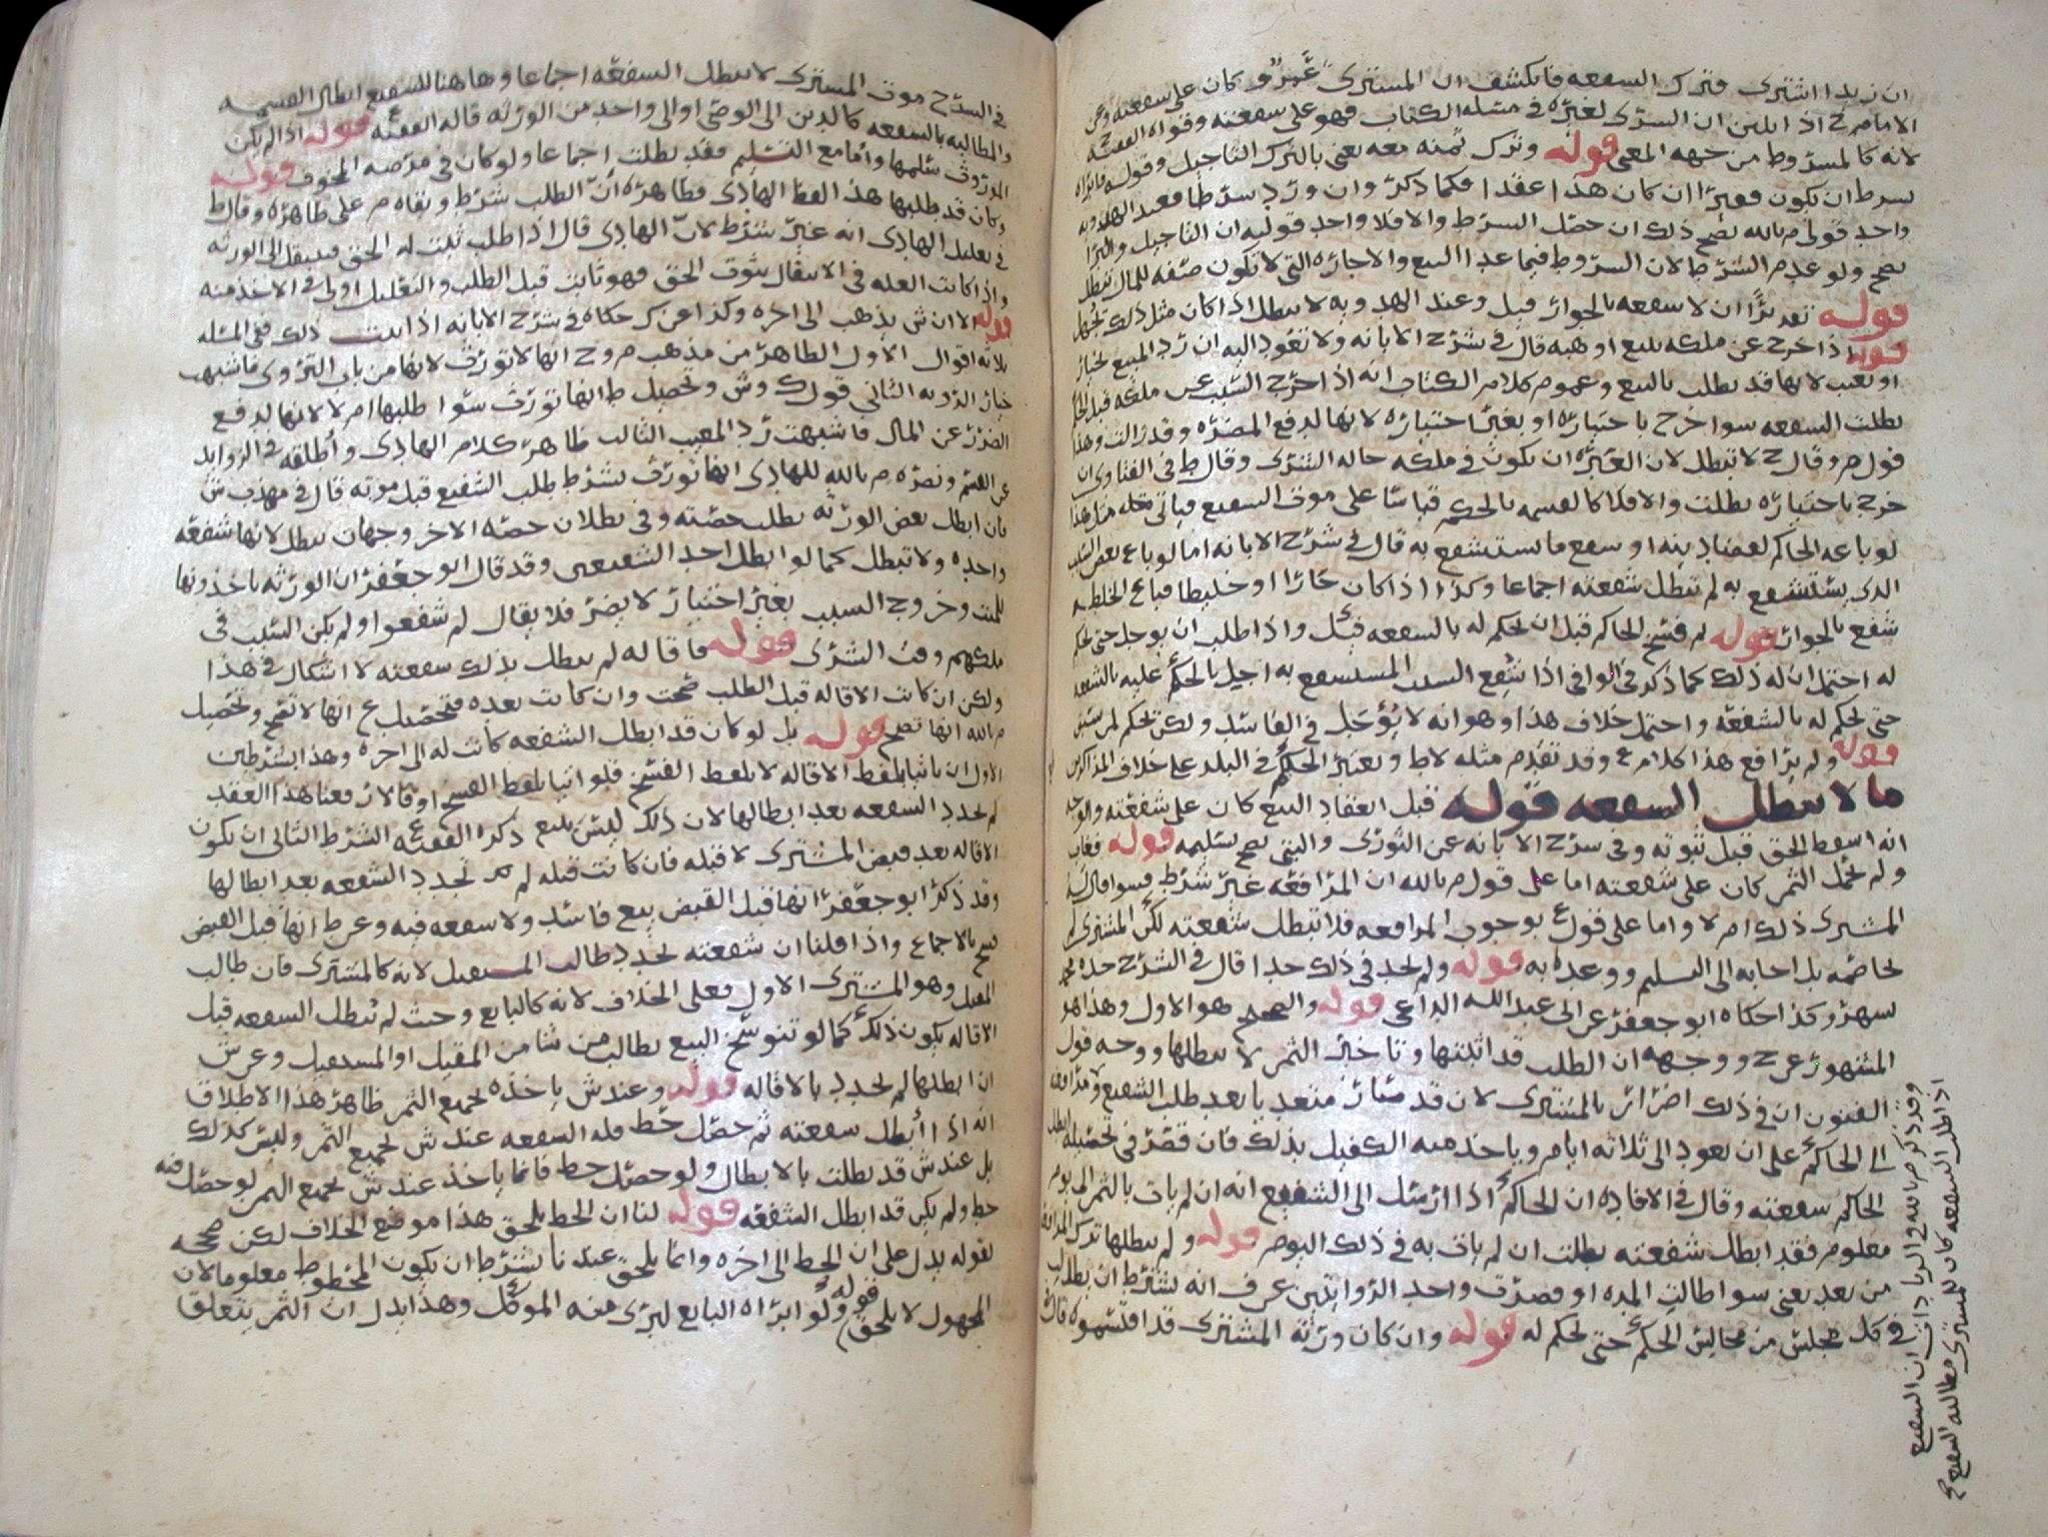 ان زيدا اشترى فترك السفعه فانكشف ان المسترى عمرو كان على سفعته وعن
الامام ح اذا تبين ان السرى لغيره في مسله الكتاب فهو على سفعته وقواه الفقيه ح
لانه كالمسروط من جهه المعنى قوله وترك ثمنه معه يعني بالترك التاجيل وقوله
سرط ان يكون معيرا ان كان هذا عقدا فكما ذكر وان ورد سرطا فعند الهدويه
واحد قولى م بالله يصح ذلك ان حصل السرط والا فلا واحد قوليه ان التاجيل والبرا
يصح ولو عدم الشرط لان السروط فيما عدا البيع والاجاره التي لا تكون صفه للمال تبطل
قوله تقديرا ان لا سفعه بالجوار قيل وعند الهدويه لا تبطل اذا كان مثل ذلك يجهل
قوله اذا خرج عن ملكه ببيع او هبه قال في شرح الابانه ولا تعود اليه ان رد المبيع بخيار
او بعيب لانها قد بطلت بالبيع وعموم كلام الكتاب انه اذا خرج السبب عن ملكه قبل الحكم
بطلت السفعه سوا خرج باختياره او بغير اختياره لانها لدفع المضره وقد زالت وهذا
قول م وقال ح لا تبطل لان العبره ان يكون في ملكه حاله الشرى وقال ط في الفتاوى ان
خرج باختياره بطلت والا فلا كالقسمه بالحكم قياسا على موت السفيع فياتي مثله هذا
لو باعه الحاكم لقضا دينه او سفع ما يستشفع به قال في شرح الابانه اما لو باع بعض السبب
الدى يستشفع به لم تبطل شفعته اجماعا وكذا اذا كان جارا او خليطا فباع الخلطه
شفع بالجوار قوله لم فسخ الحاكم قبل ان يحكم له بالسفعه قيل واذا طلب ان يوجل حتى يحكم
له احتمل ان له ذلك كما ذكر في الوافي اذا شفع السبب المستشفع به اجيل بالحكم عليه بالشفعه
حتى يحكم له بالشفعه واحتمل خلاف هذا وهو انه لا يؤجل في الفاسد ولكن يحكم لمن سبق
قوله ولم يرافع هذا كلام ع وقد تقدم مثله لاط ويعتبر الحكم في البلد على خلاف المذاكرين
ما لا تبطل السفعه قوله قبل انعقاد البيع كان على شفعته والوجه
انه اسقط الحق قبل ثبوته وفي سرح الابانه عن الثورى والبتي يصح تسليمه قوله فغاب
ولم يحمل الثمن كان على شفعته اما على قول م بالله ان المرافعه غير شرط فسوا قال له
المشترى ذلك ام لا واما على قول ع بوجوب المرافعه فلا تبطل شفعته لكن المشترى لم
يخاصمه بل اجابه الى التسليم ووعده به قوله ولم يحد في ذلك حدا قال في الشرح حده محمد
بسهر وكذا حكاه ابو جعفر عن ابى عبد الله الداعي قوله والصحيح هو الاول وهذا هو
المشهور عن ح ووجهه ان الطلب قد اثبتها وتاخير الثمن لا يبطلها ووجه قول
الفنون ان في ذلك اضرار بالمشترى لان قد صار متعديا بعد طلب الشفيع ومرافعته
الى الحاكم على ان يعود الى ثلاثه ايام وياخذ منه الكفيل بذلك فان قصر في تحصيله ابطل
الحاكم سفعته وقال في الافاده ان الحاكم اذا ارسل الى الشفيع انه ان لم يات بالثمن الى يوم
معلوم فقد ابطل شفعته بطلت ان لم يات به في ذلك اليوم قوله ولم يبطلها ترك المرافعه
من بعد يعني سوا طالت المده او قصرت واحد الروايتين عرف انه يشترط ان يطلب
في كل مجلس من مجالس الحكم حتى يحكم له قوله وان كان ورثه المشترى قد اقتسموه قال
وقد ذكر م بالله في الزيادات ان السفيع
اذا طلب السفعه كان للمسترى مطالبه السفيع
في السرح موت المسترى لا تبطل السفعه اجماعا وهاهنا للسفيع ابطال القسمه
والمطالبه بالسفعه كالدين الى الوصى او الى واحد من الورثه قاله الفقيه ع قوله اذا لم يكن
الموروث سلمها واما مع التسليم فقد بطلت اجماعا ولو كان في مرضه المخوف قوله
وكان قد طلبها هذا لفظ الهادى وظاهره ان الطلب شرط وبقاه م على ظاهره وقال ط
في تعليل الهادى انه غير شرط لان الهادى قال اذا طلب ثبت له الحق فينتقل الى الورثه
واذا كانت العله في الانتقال ثبوت الحق فهو ثابت قبل الطلب والتعليل اولى في الاخذ منه
قوله الا ان ش يذهب الى اخره وكذا عن ك حكاه في شرح الابانه اذا ثبت ذلك ففي المسله
ثلاثه اقوال الاول الظاهر من مذهب م و ح انها لا تورث لانها من باب التروى فاشبهت
خيار الرويه الثاني قول ك وش وتحصيل ط انها تورث سوا طلبها ام لا لانها لدفع
الضرر عن المال فاشبهت رد المعيب الثالث ظاهر كلام الهادى واطلقه في الزوايد
عن القسم ونصره م بالله للهادى انها تورث بشرط طلب الشفيع قبل موته قال في مهذب ش
فان ابطل بعض الورثه بطلت حصته وفي بطلان حصه الاخر وجهان تبطل لانها شفعه
واحده ولا تبطل كما لو ابطل احد الشفيعين وقد قال ابو جعفر ان الورثه ياخذونها
للميت وخروج السبب بغير اختيار لا يضر فلا يقال لم شفعوا ولم يكن السبب في
ملكهم وقت الشرى قوله فاقاله لم تبطل بذلك سفعته لا اشكال في هذا
ولكن ان كانت الاقاله قبل الطلب صحت وان كانت بعده فتحصيل ع انها لا تصح وتحصيل
م بالله انها تصح قوله بل لو كان قد ابطل الشفعه كانت له الى اخره وهذا بشرطين
الاول ان ياتيا بلفظ الاقاله لا بلفظ الفسخ فلو اتيا بلفظ الفسخ او قالا رفعنا هذا العقد
لم تجدد السفعه بعد ابطالها لان ذلك ليس ببيع ذكره الفقيه ع الشرط الثاني ان يكون
الاقاله بعد قبض المشترى لا قبله فان كانت قبله لم تجدد الشفعه بعد ابطالها
وقد ذكر ابو جعفر انها قبل القبض بيع فاسد ولا سفعه فيه وعن ط انها قبل القبض
فسخ بالاجماع واذا قلنا ان شفعته تجدد طالب المستقيل لانه كالمشترى فان طالب
المقيل وهو المشترى الاول فعلى الخلاف لانه كالبايع وحيث لم تبطل السفعه قبل
الاقاله يكون ذلك كما لو تنوسخ البيع يطالب من شا من المقيل او المستقيل وعن ش
ان ابطلها لم تجدد بالاقاله قوله وعند ش ياخذه بجميع الثمن ظاهر هذا الاطلاق
انه اذا ابطل سفعته ثم حصل حط فله السفعه عند ش بجميع الثمن وليس كذلك
بل عند ش قد بطلت بالابطال ولو حصل حط فانما ياخذ عند ش بجميع الثمن لو حصل فيه
حط ولم يكن قد ابطل الشفعه قوله لنا ان الحط يلحق هذا موضع الخلاف لكن صححه
بقوله يدل على ان الحط الى اخره وانما يلحق عندنا بشرط ان يكون المحطوط معلوما لان
المجهول لا يلحق قوله ولو ابراه البايع لبرى منه الموكل وهذا يدل ان الثمن يتعلق